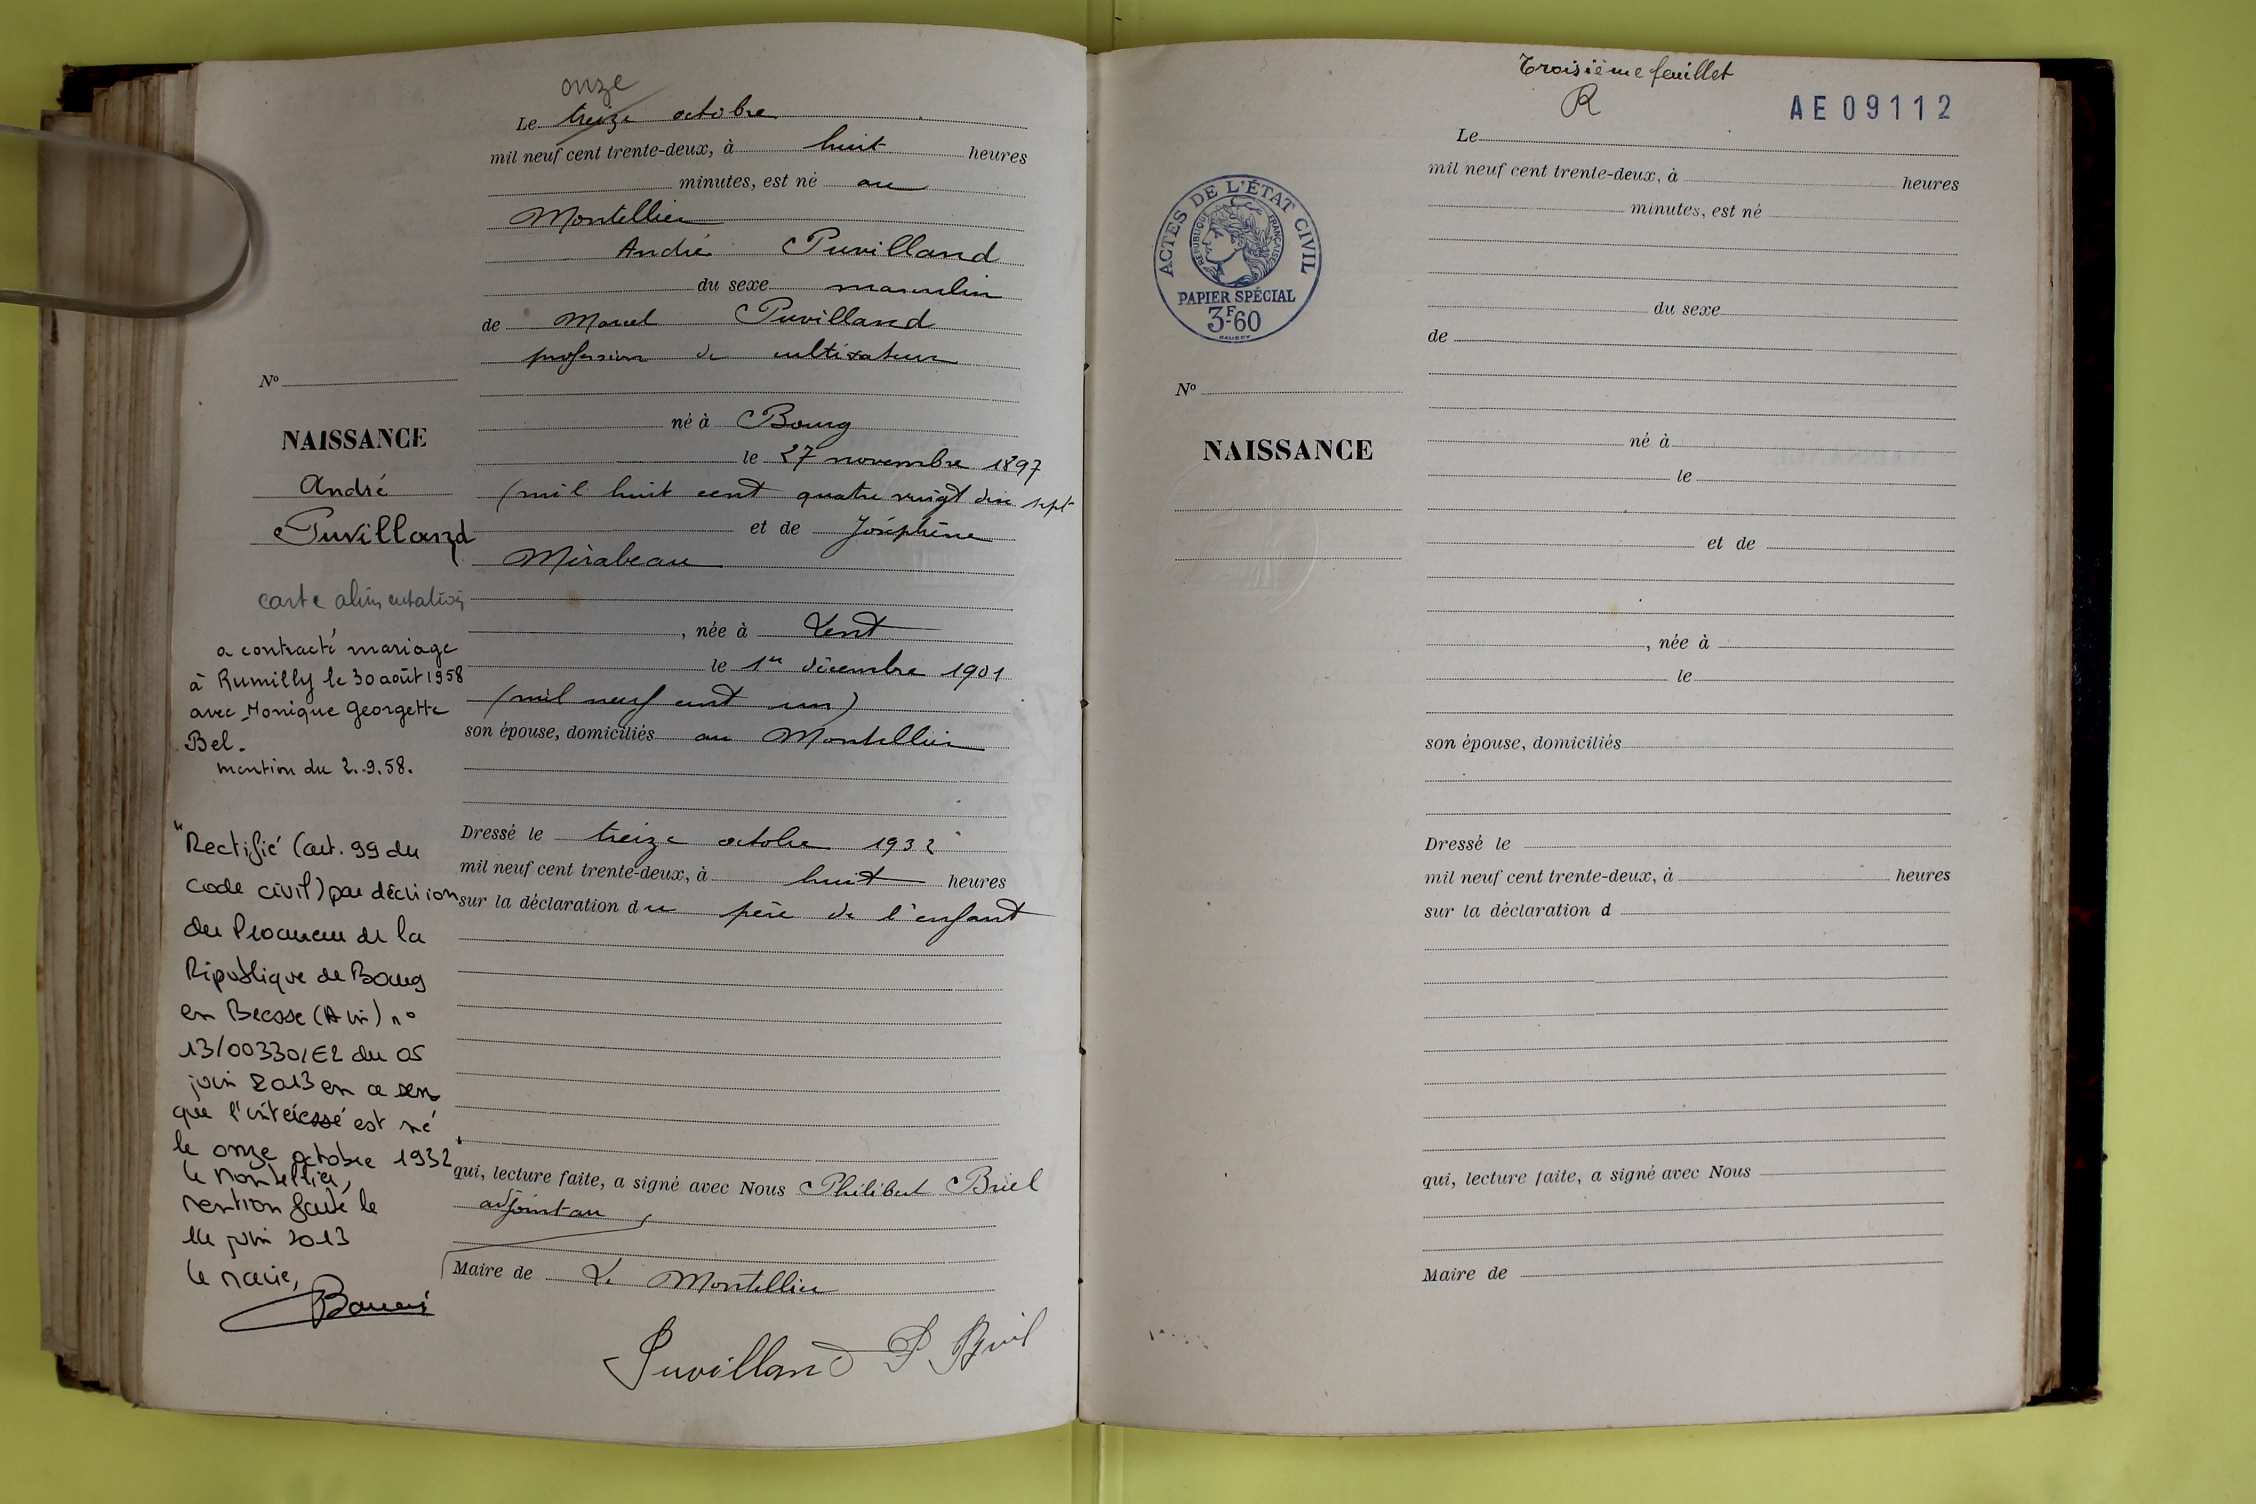 onze
Le treize octobre
mil neuf cent trente-deux, à huit heures
minutes, est né au
Montellier
André Puvilland
du sexe masculin
de Marcel Puvilland
profession de cultivateur
né à Bourg
le 27 novembre 1897
(mil huit cent quatre vingt dix sept
et de Joséphine
Mirabeau
, née à Lent
le 1er décembre 1901
(mil neuf cent un)
son épouse, domiciliés au Montellier
Dressé le treize octobre 1932
mil neuf cent trente-deux, à huit heures
sur la déclaration du père de l'enfant
qui, lecture faite, a signé avec Nous Philibert Briel
adjoint au
Maire de Le Montellier
Puvilland P Briel
Nº
NAISSANCE
André
Puvilland
carte alimentation
a contracté mariage
à Rumilly le 30 août 1958
avec Monique Georgette
Bel.
mention du 2.9.58.
"Rectifié (art. 99 du
code civil) par décision
du Procureur de la
République de Bourg
en Bresse (Ain) nº
13/00330/E2 du 05
juin 2013 en ce sens
que l'intéressé est né
le onze octobre 1932"
Le Montellier,
mention faite le
14 juin 2013
Le Maire,
Troisième feuillet
R
AE09112
ACTES DE L'ÉTAT CIVIL
RÉPUBLIQUE FRANÇAISE
PAPIER SPÉCIAL
3F60
Nº
NAISSANCE
Le
mil neuf cent trente-deux, à heures
minutes, est né
du sexe
de
né à
le
et de
, née à
le
son épouse, domiciliés
Dressé le
mil neuf cent trente-deux, à heures
sur la déclaration d
qui, lecture faite, a signé avec Nous
Maire de